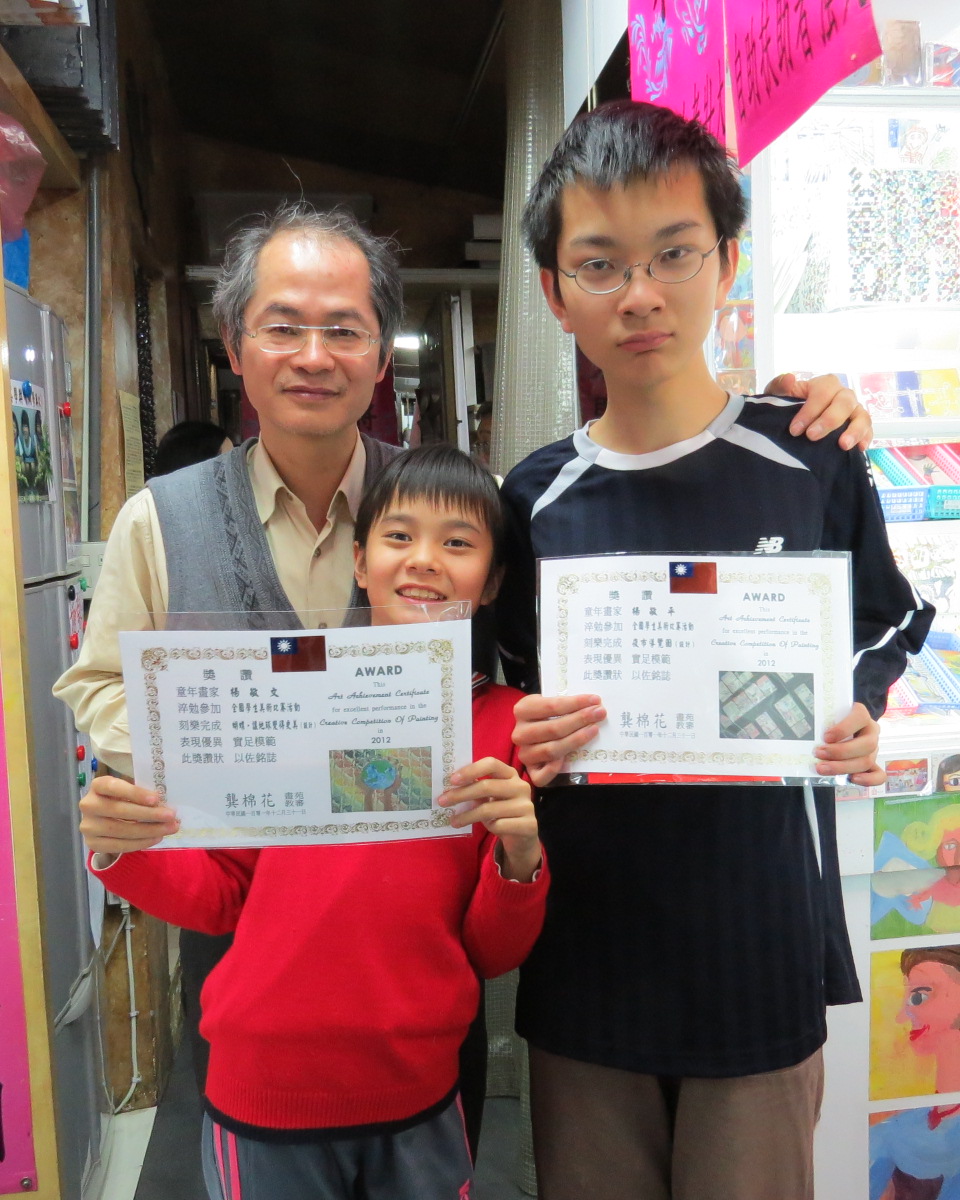 自助扶助者
NB
獎 讚
童年畫家 楊 敬 文
淬勉參加 全國學生美術比賽活動
刻樂完成 蝴蝶、讓地球變得更美(設計)
表現優異 實足模範
此獎讚狀 以佐銘誌
AWARD
This
Art Achievement Certificate
for excellent performance in the
Creative Competition Of Painting
in
2012
龔棉花 畫苑教審
中華民國一百零一年十二月三十一日
獎 讚
童年畫家 楊 敬 平
淬勉參加 全國學生美術比賽活動
刻樂完成 夜市導覽圖(設計)
表現優異 實足模範
此獎讚狀 以佐銘誌
AWARD
This
Art Achievement Certificate
for excellent performance in the
Creative Competition Of Painting
in
2012
龔棉花 畫苑教審
中華民國一百零一年十二月三十一日